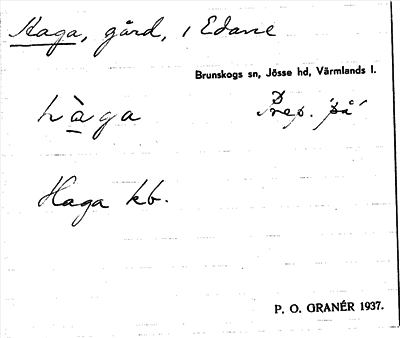 Haga, gård, i Edane
Brunskogs sn, Jösse hd, Värmlands l.
hàga Prep. 'på'
Haga kb.
P. O. GRANÉR 1937.